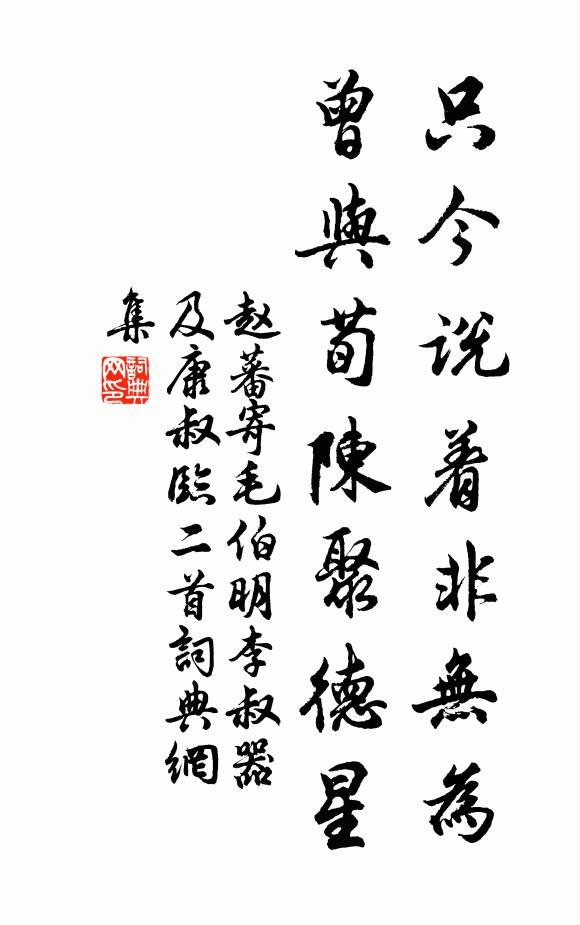 只今说着非無為
曾與荀陳聚德星
赵蕃寄毛伯明李叔器
及康叔臨二首詞典網
集
詞典
网印